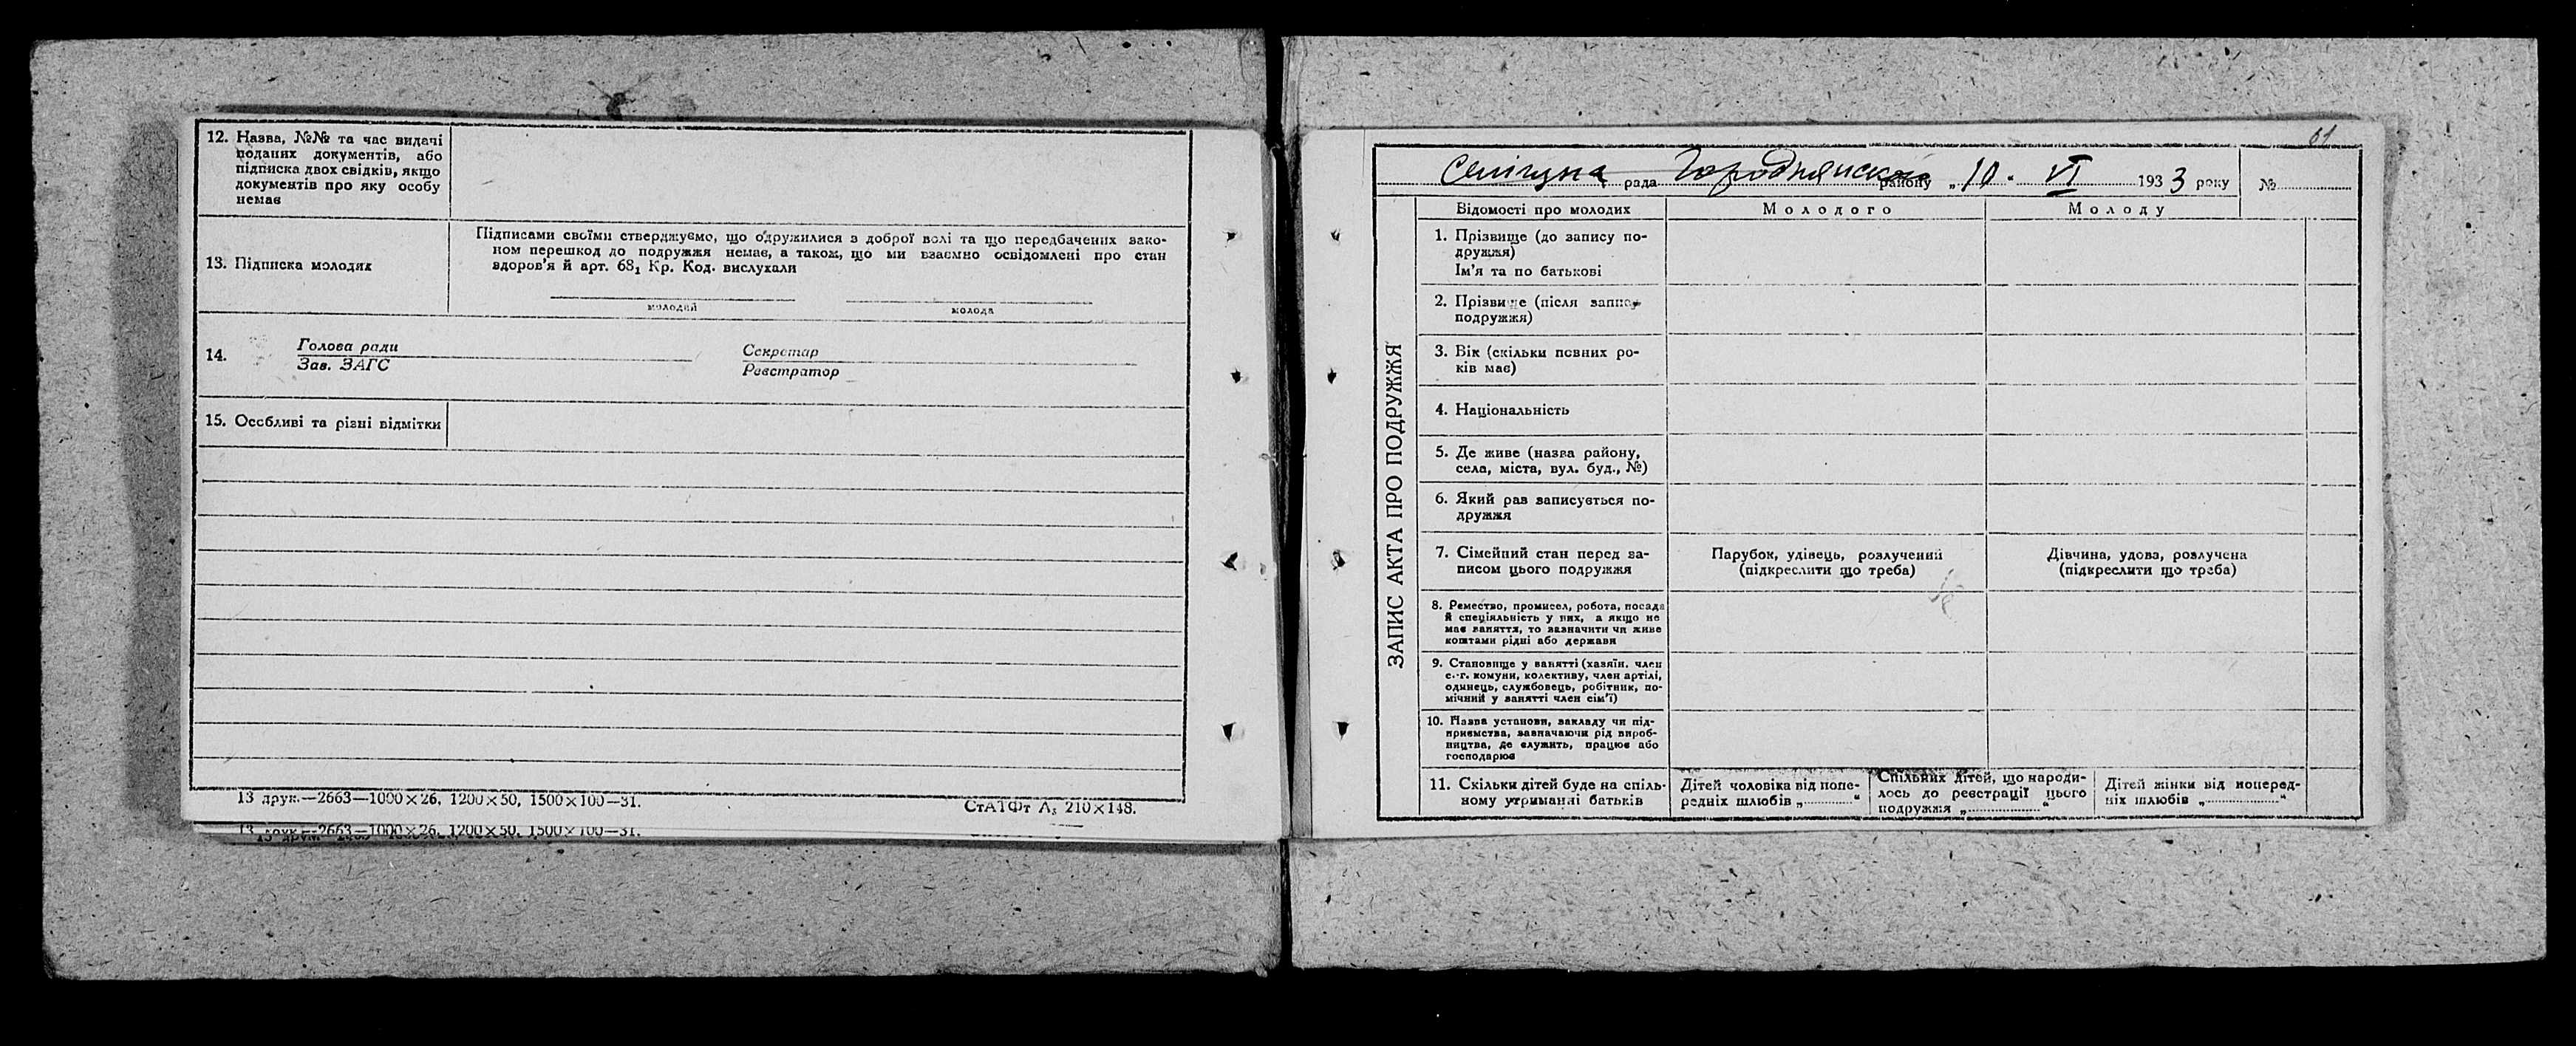 12. Назва, №№ та час видачі
поданих документів, або
підписка двох свідків, якщо
документів про яку особу
немає
13. Підписка молодях
Підписами своїми стверджуємо, що одружилися з доброї волі та що передбачених зако-
ном перешкод до подружжя немає, а також, що ми взаємно освідомлені про стан
здоров'я й арт. 68₁ Кр. Код. вислухали
молодий
молода
14.
Голова ради
Зав. ЗАГС
Секретар
Реєстратор
15. Особливі та різні відмітки
13 друк.—2663—1000×26, 1200×50, 1500×100—31.
СтАТФт А₅ 210×148.
13 друк.—2663—1000×26, 1200×50, 1500×100—31.
61
рада Городнянского району „10" VI 1933 року №
ЗАПИС АКТА ПРО ПОДРУЖЖЯ
Відомості про молодих
Молодого
Молоду
1. Прізвище (до запису по-
дружжя)
Ім'я та по батькові
2. Прізвище (після запису
подружжя)
3. Вік (скільки повних ро-
ків має)
4. Національність
5. Де живе (назва району,
села, міста, вул. буд., №)
6. Який раз записується по-
дружжя
7. Сімейний стан перед за-
писом цього подружжя
Парубок, удівець, розлучений
(підкреслити що треба)
Дівчина, удова, розлучена
(підкреслити що треба)
8. Ремество, промисел, робота, посада
й спеціяльність у них, а якщо не
має заняття, то зазначити чи живе
коштами рідні або держави
9. Становище у занятті (хазяїн, член
с.-г. комуни, колективу, член артілі,
одинець, службовець, робітник, по-
мічний у занятті член сім'ї)
10. Назва установи, закладу чи під-
приємства, зазначаючи рід вироб-
ництва, де служить, працює або
господарює
11. Скільки дітей буде на спіль-
ному утриманні батьків
Дітей чоловіка від попе-
редніх шлюбів „ "
Спільних дітей, що народи-
лось до реєстрації цього
подружжя „ "
Дітей жінки від поперед-
ніх шлюбів „ "